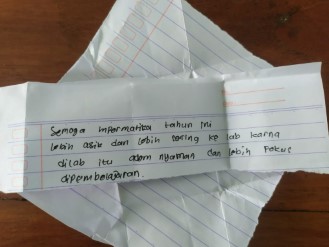 Semoga informatika tahun ini
lebih asik dan lebih sering ke lab karna
dilab itu adem nyaman dan lebih Fokus
dipembelajaran.